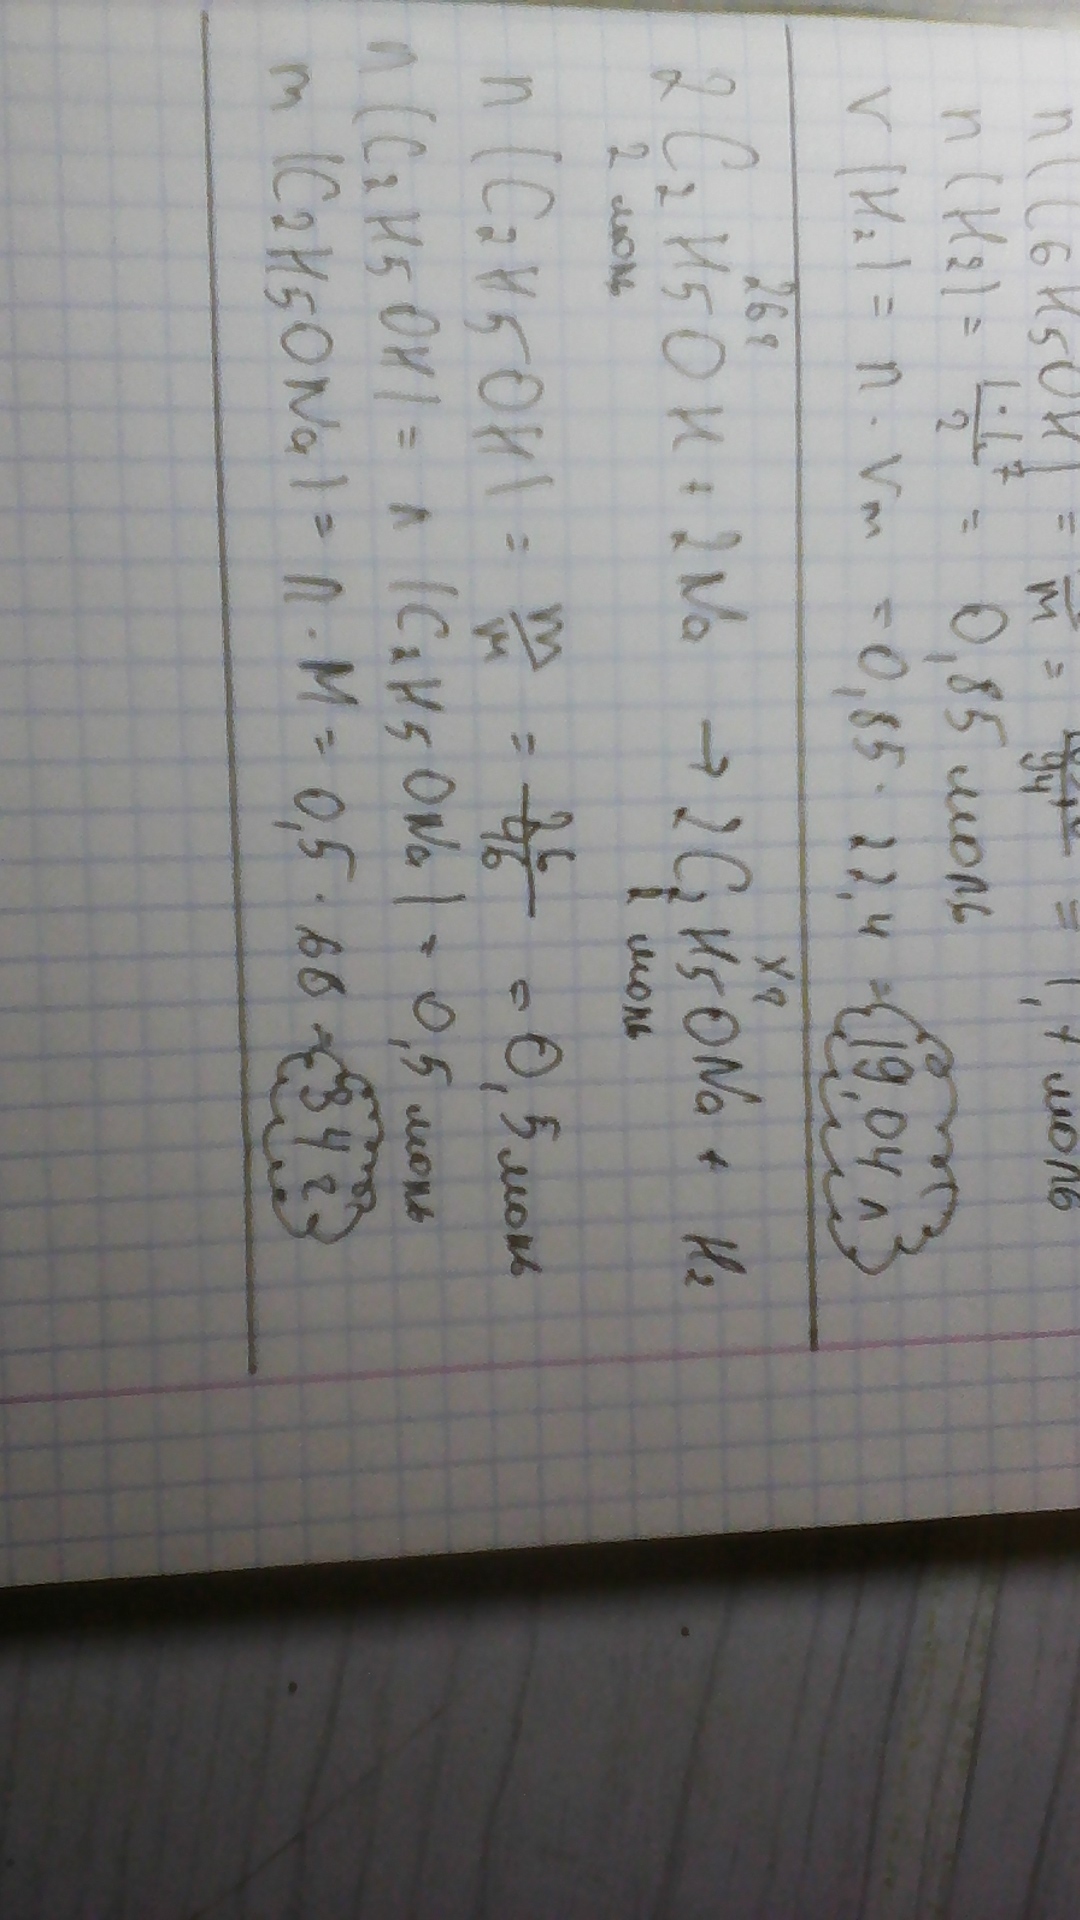 n(C6H5OH) = m/M = /94 = 1,7 моль
n(H2) = 1·1,7/2 = 0,85 моль
V(H2) = n · Vm = 0,85 · 22,4 = 19,04 л
26г xг
2C2H5OH + 2Na → 2C2H5ONa + H2
2 моль 2 моль
n(C2H5OH) = m/M = 26/46 = 0,5 моль
n(C2H5OH) = n(C2H5ONa) = 0,5 моль
m(C2H5ONa) = n · M = 0,5 · 68 = 34 г